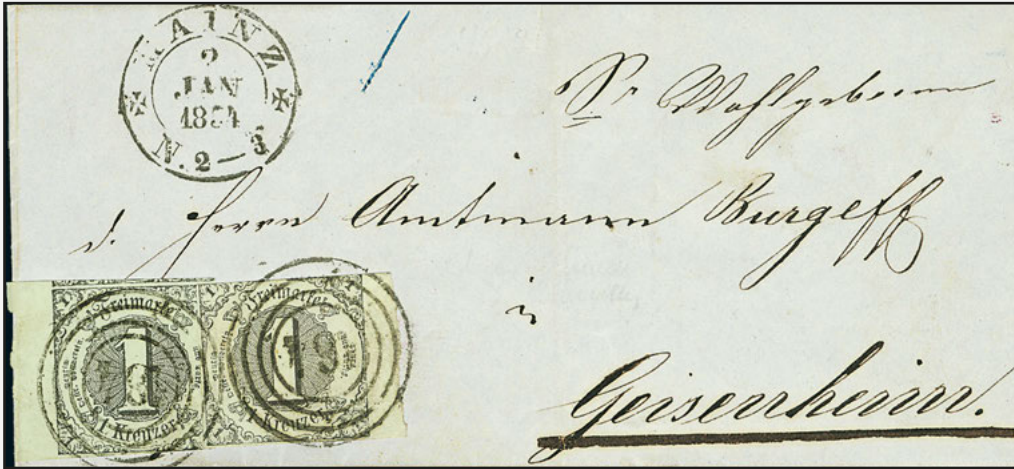 MAINZ
2
JAN
1854
N. 2–3
Sr Wohlgeboren
d. Herrn Amtmann Burgeff
in
Geisenheim.
Freimarke
1
1. Kreuzer.
Freimarke
1
1. Kreuzer.